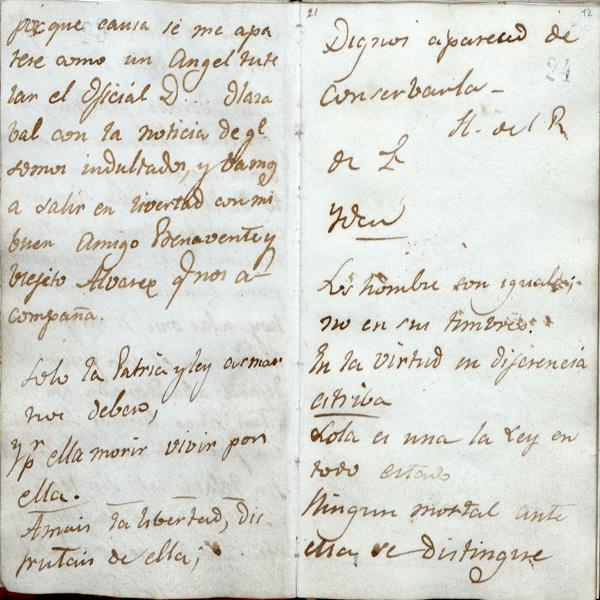 porque causa se me apa
rese como un Angel tute
lar el Oficial D... Olara
bal con la noticia de qe.
somos indultados, y bamos
a salir en livertad con mi
buen Amigo Benavente y
biejito Alvarez q nos a-
compaña.
Solo la Patria y ley asmar
nos debeis,
y pr ella morir vivir por
ella.
Amais la libertad, dis
frutais de ella;
21
12
Dignos apareced de
21
conserbarla-
H. del R
de L
Yden
Los hombre son iguales;
no en sus timbres.
En la virtud su diferencia
estriba
Sola es una la Ley en
todo estado
Ningun mortal ante
ella se distingue